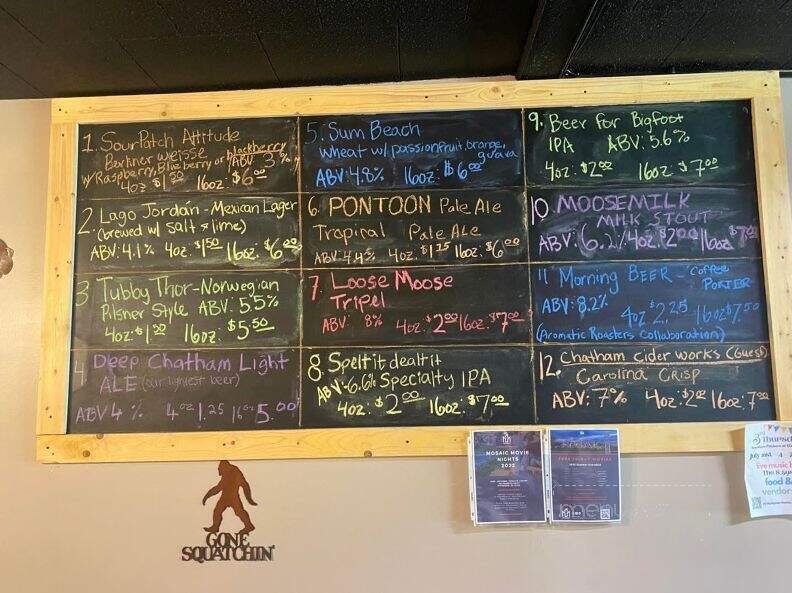 1. Sour Patch Attitude
Berliner weisse
w/ Raspberry, Blueberry or blackberry
ABV 3 %
4oz 16oz: $6.00
2. Lago Jordán - Mexican Lager
(brewed w/ salt & lime)
ABV: 4.1% 4oz: $1.50 16oz: $6.00
3 Tubby Thor - Norwegian
Pilsner Style ABV: 5.5%
4oz: 16oz: $5.50
4. Deep Chatham Light
ALE (our lightest beer)
ABV 4 % 4oz 1.25 16oz 5.00
5. Sum Beach
wheat w/ passionfruit, orange,
guava
ABV: 4.8% 16oz: $6.00
6. PONTOON Pale Ale
Tropical Pale Ale
ABV: 4.4% 4oz: $1.25 16oz: $6.00
7. Loose Moose
Tripel
ABV: 8% 4oz: $2.00 16oz: $7.00
8. Spelt it dealt it
ABV: 6.6% Specialty IPA
4oz: $2.00 16oz: $7.00
9. Beer for Bigfoot
IPA ABV: 5.6%
4oz: $2.00 16oz: $7.00
10. MOOSEMILK
MILK STOUT
ABV: 6.2% 4oz: $2.00 16oz $7.00
11 Morning BEER - Coffee
PORTER
ABV: 8.2% 4oz $2.25 16oz $7.50
(Aromatic Roasters Collaboration)
12. Chatham Cider Works (Guest)
Carolina Crisp
ABV: 7% 4oz: $2.00 16oz: 7.00
GONE
SQUATCHIN'
MOSAIC MOVIE
NIGHTS
2022
live music
food &
vendor